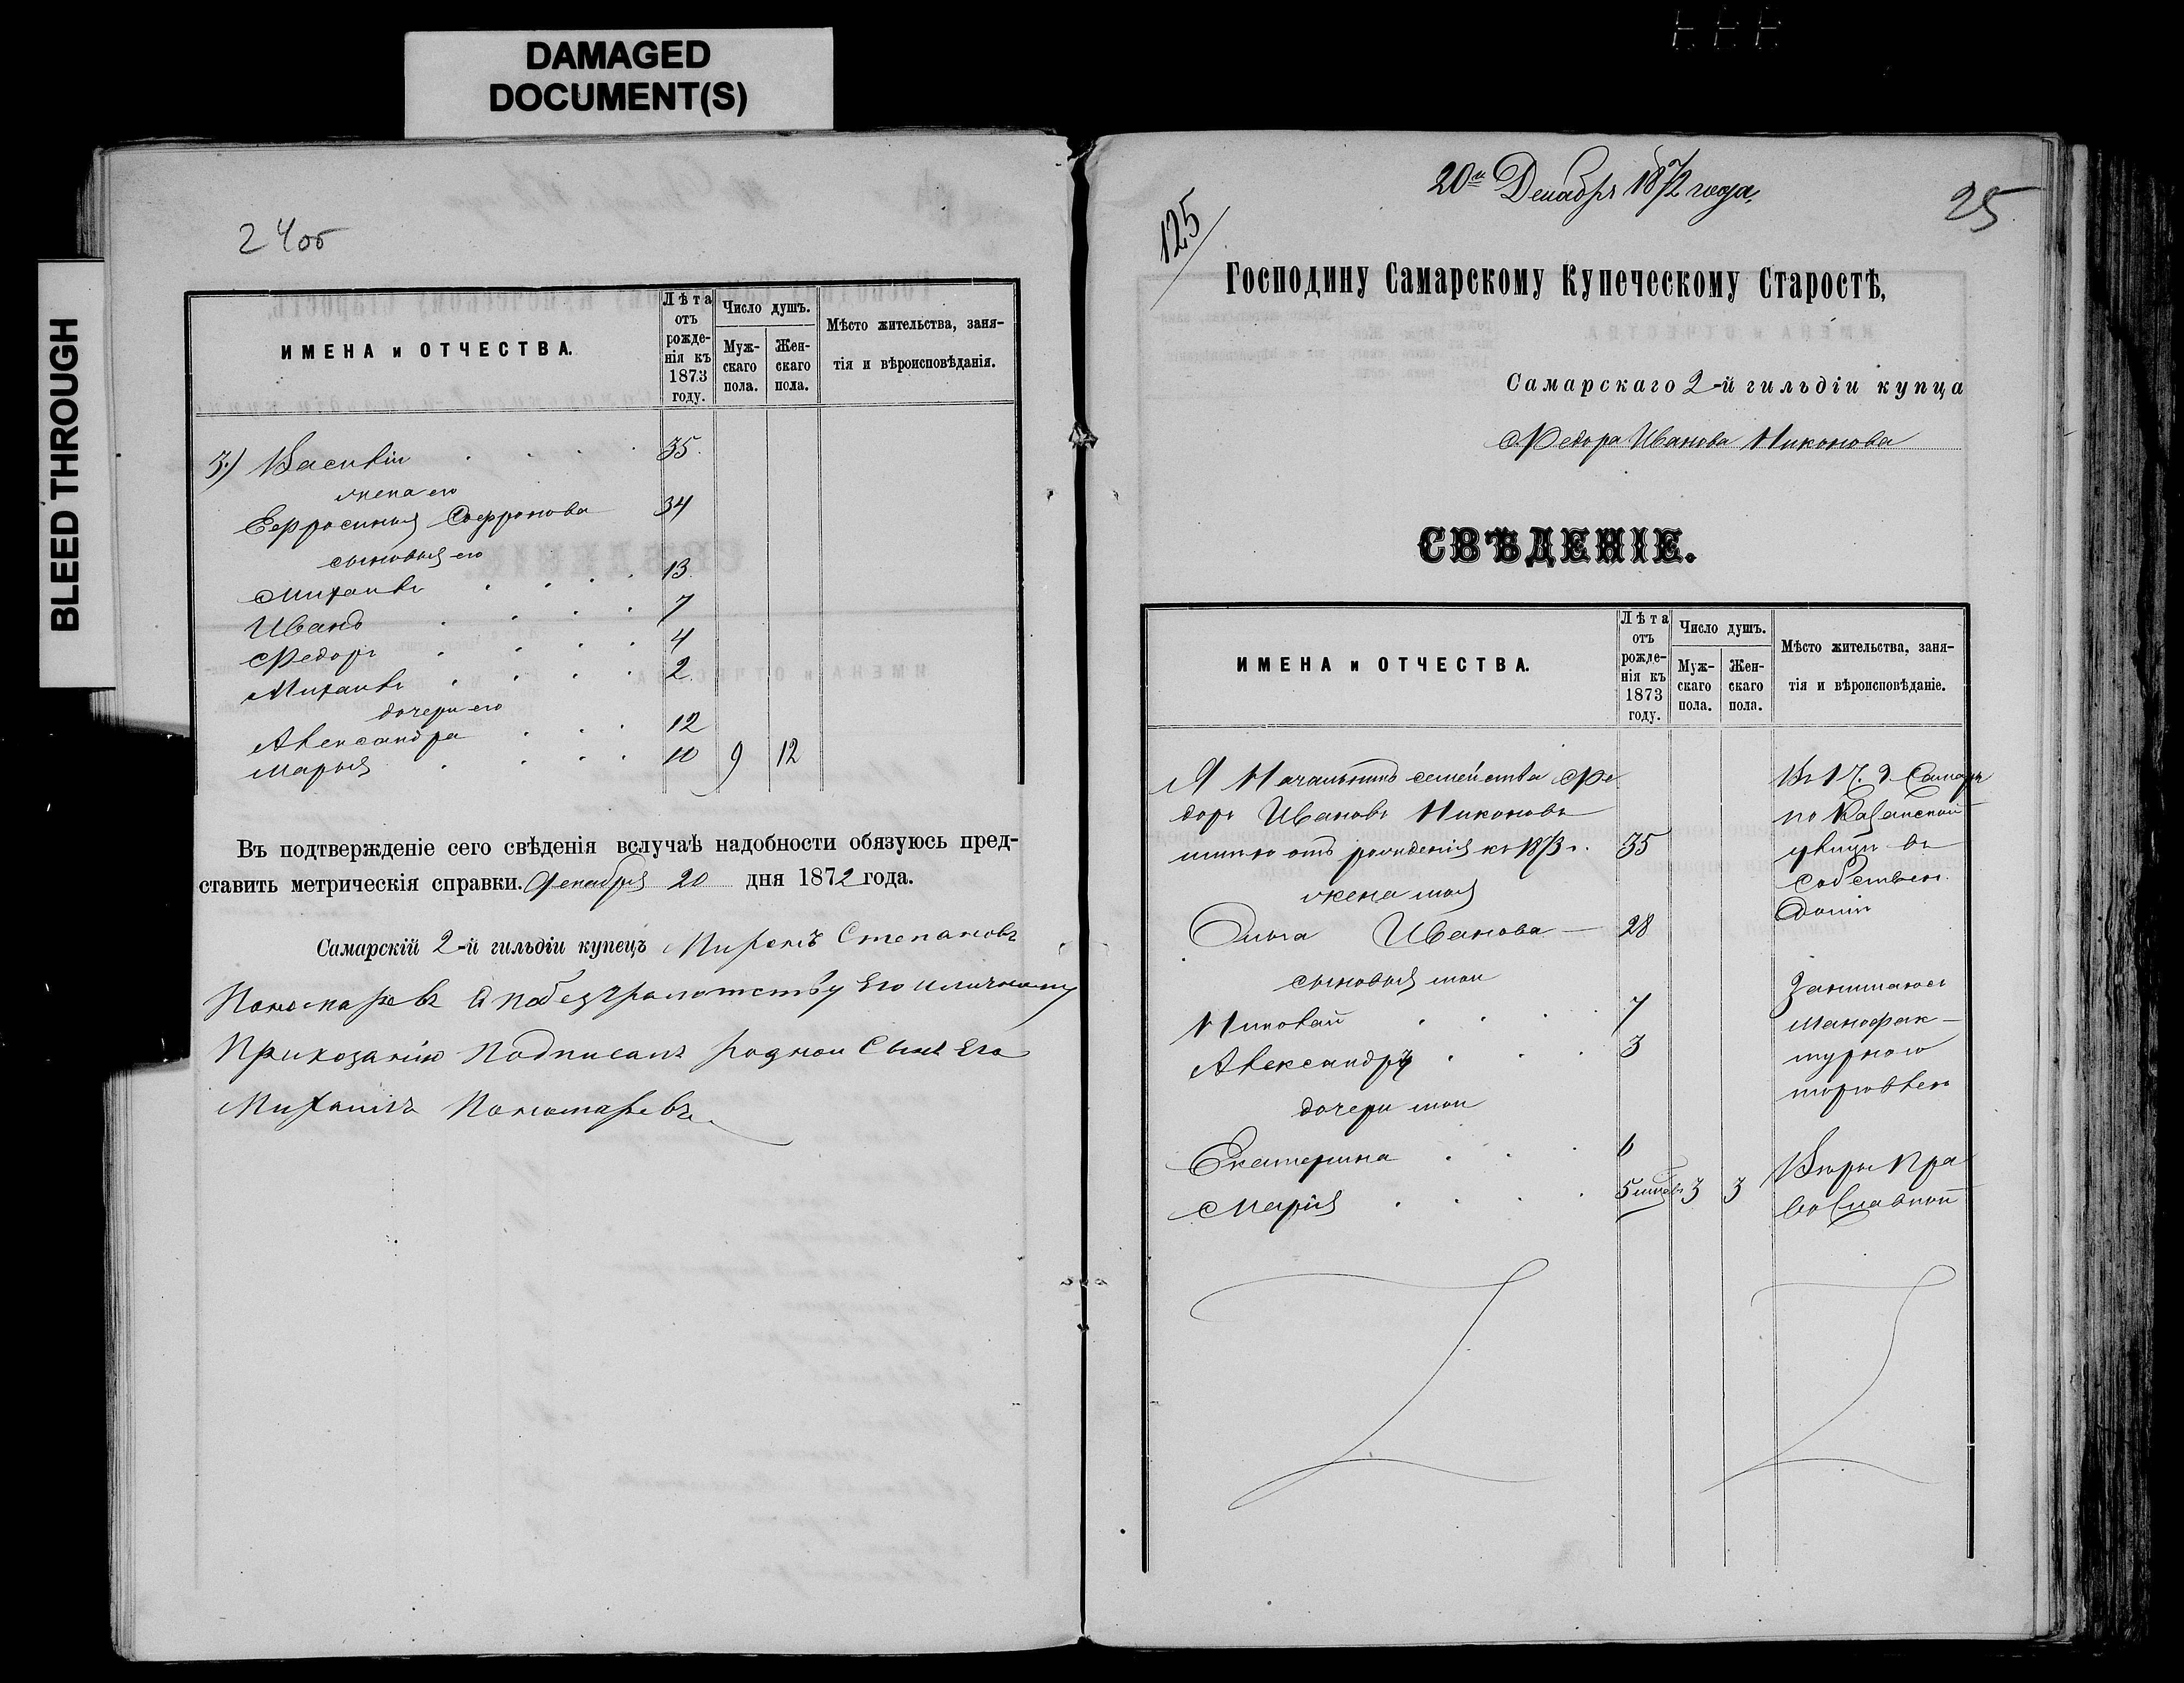 DAMAGED
DOCUMENT(S)
BLEED THROUGH
24об
ИМЕНА и ОТЧЕСТВА.
Лѣта отъ рожденія къ 1873 году.
Число душъ.
Мужскаго пола.
Женскаго пола.
Мѣсто жительства, занятія и вѣроисповѣданія.
3.) Василій 35.
жена его
Ефросинья Софронова 34
сыновья его
Михаилъ 13.
Иванъ 7
Федоръ 4
Михаилъ 2.
дочери его
Александра 12
Марья 10 9 12
Въ подтвержденіе сего свѣденія вслучаѣ надобности обязуюсь пред-
ставить метрическія справки. Декабря 20 дня 1872 года.
Самарскій 2-й гильдіи купецъ Миронъ Степановъ
Пономаревъ а побезграмотству Его иличному
Приказанію Подписалъ родной Сынъ Его
Михаилъ Пономаревъ
20го Декабря 1872 года,
125
25
Господину Самарскому Купеческому Старостѣ,
Самарскаго 2-й гильдіи купца
Федора Иванова Никонова
СВѢДЕНІЕ.
ИМЕНА и ОТЧЕСТВА.
Лѣта отъ рожденія къ 1873 году.
Число душъ.
Мужскаго пола.
Женскаго пола.
Мѣсто жительства, занятія и вѣроисповѣданіе.
Я Начальникъ семейства Фе
доръ Ивановъ Никоновъ
имѣю отъ рожденія къ 1873 г. 35
жена моя
Ольга Иванова — 28
сыновья мои
Николай 7
Александръ 3
дочери мои
Екатерина 6
Марія 5 мѣсяцъ 3 3
Въ 1 Ч. г. Самары
по Казанской
улицѣ въ
собствен.
домѣ
Занимаюсь
Манофак-
турною
торговлею
Вѣры Пра
вославной